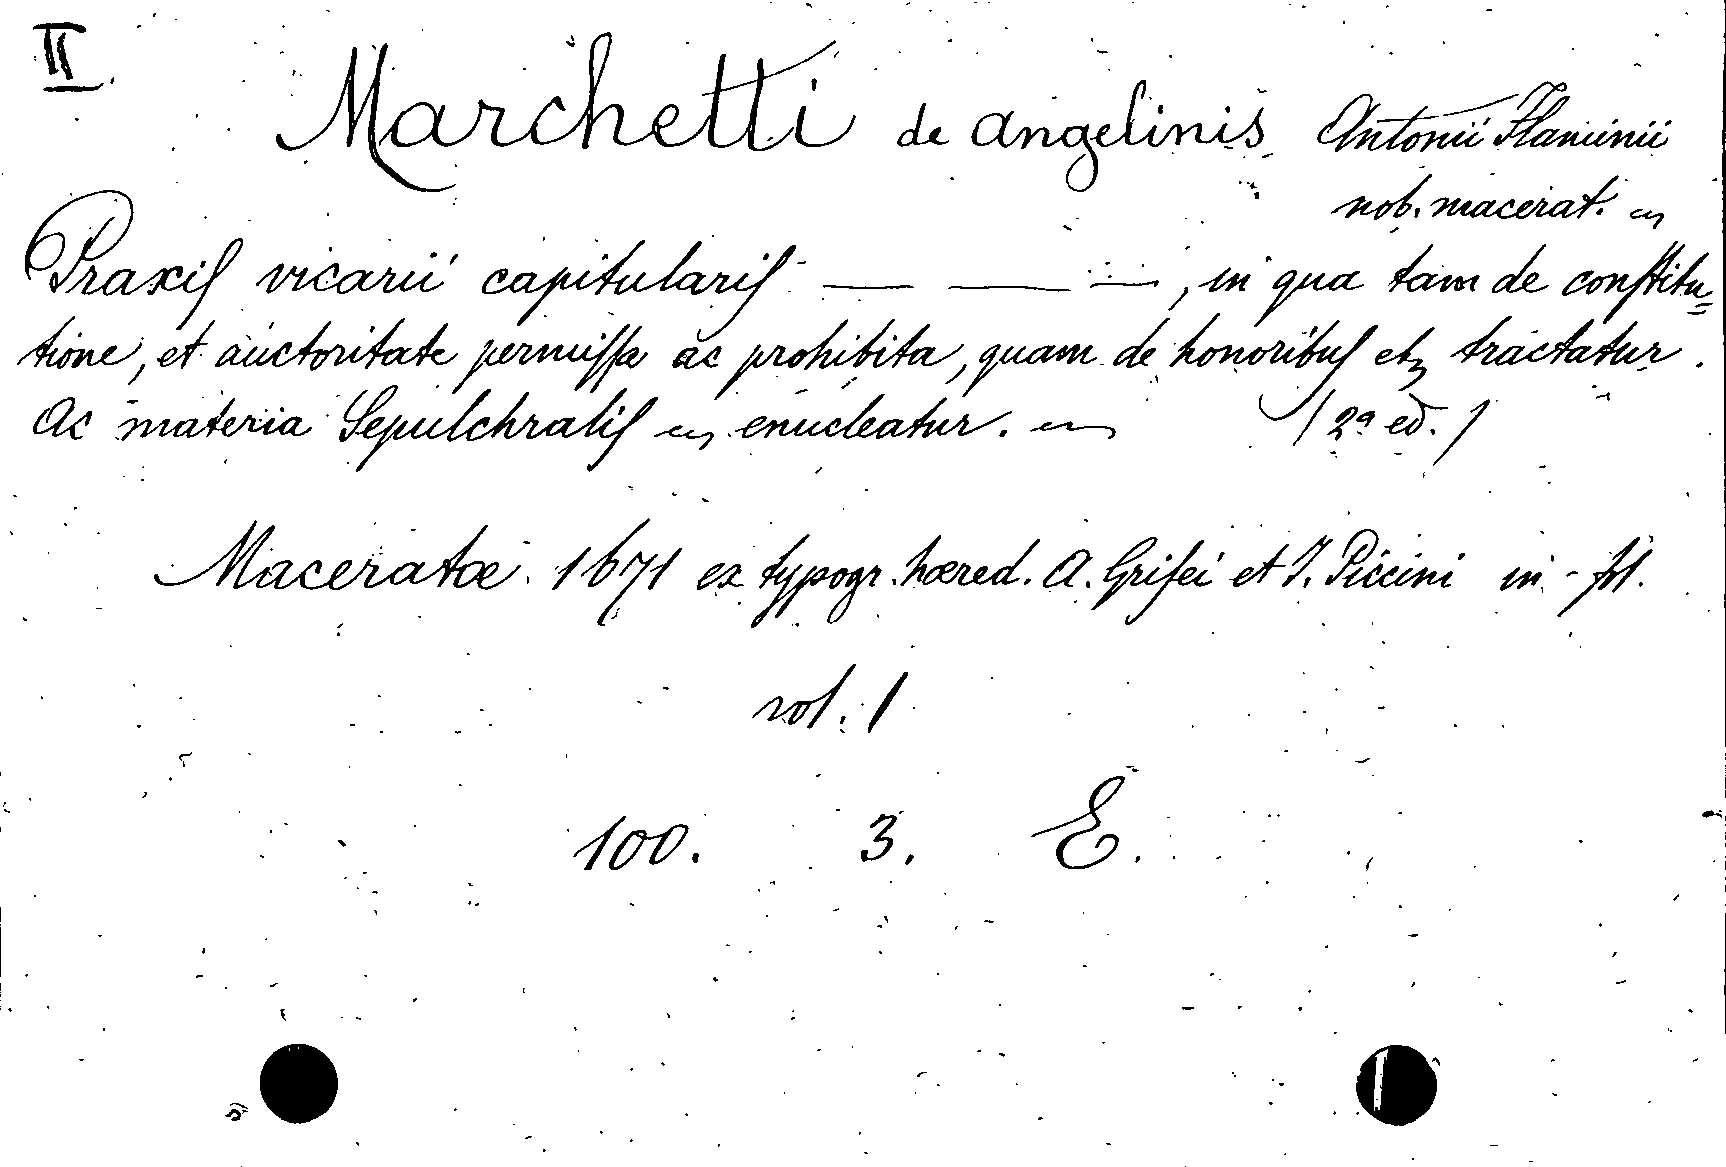 II
Marchetti de Angelinis Antonii Flaminii
nob. macerat.
Praxis vicarii capitularis — — —, in qua tam de constitu=
tione, et auctoritate permissa ac prohibita, quam de honoribus etz tractatur.
Ac materia Sepulchralis enucleatur. (2ª ed.)
Maceratæ. 1671 ex typogr. hæred. A. Grisei et J. Piccini in-fol.
vol. 1
100. 3. E.